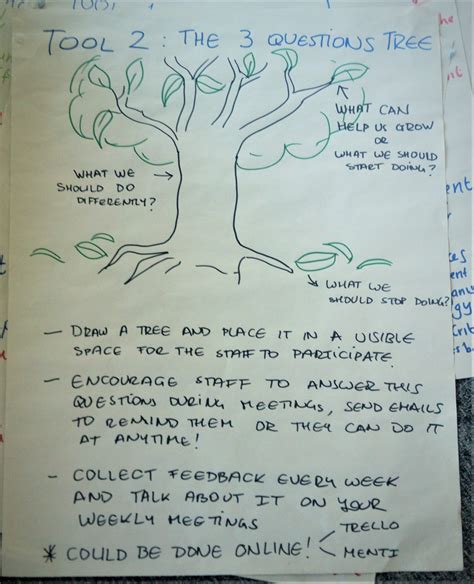 TOOL 2 : THE 3 QUESTIONS TREE
WHAT CAN
HELP US GROW
OR
WHAT WE SHOULD
START DOING?
WHAT WE
SHOULD DO
DIFFERENTLY?
WHAT WE
SHOULD STOP DOING?
- DRAW A TREE AND PLACE IT IN A VISIBLE
SPACE FOR THE STAFF TO PARTICIPATE
- ENCOURAGE STAFF TO ANSWER THIS
QUESTIONS DURING MEETINGS, SEND EMAILS
TO REMIND THEM OR THEY CAN DO IT
AT ANYTIME!
- COLLECT FEEDBACK EVERY WEEK
AND TALK ABOUT IT ON YOUR
WEEKLY MEETINGS
* COULD BE DONE ONLINE!
TRELLO
MENTI